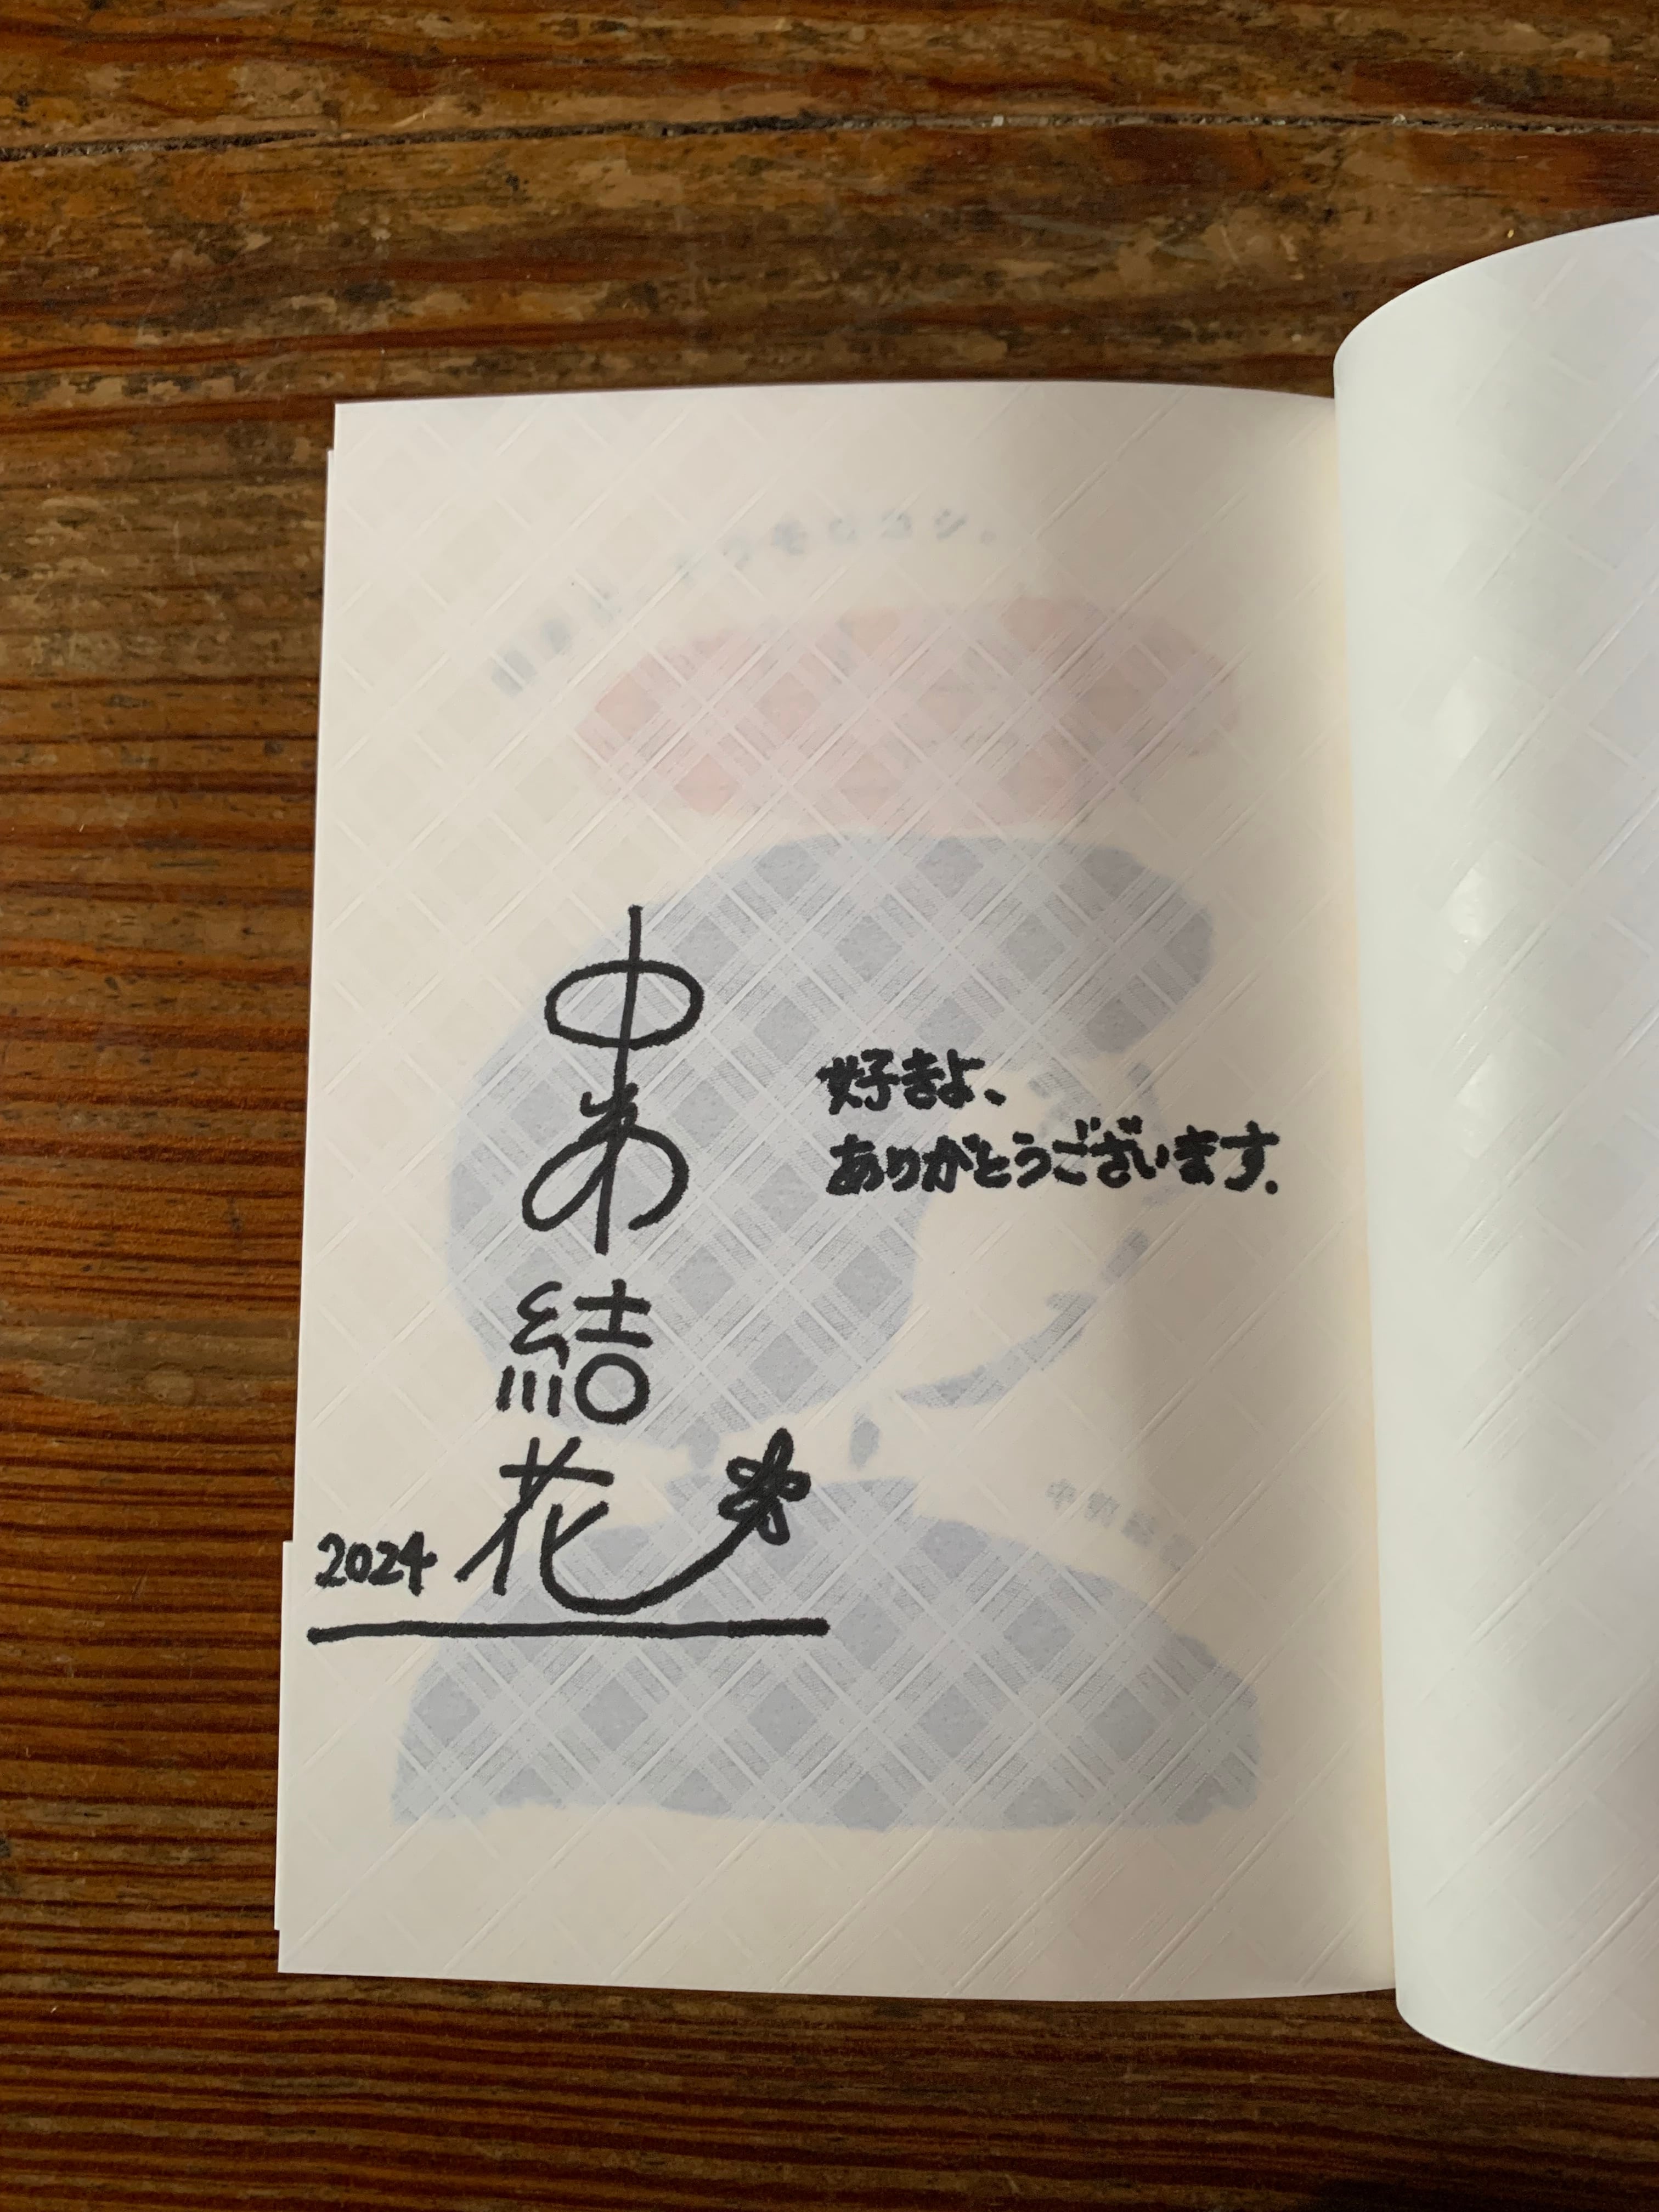 好きよ、
ありがとうございます.
中前結花
2024